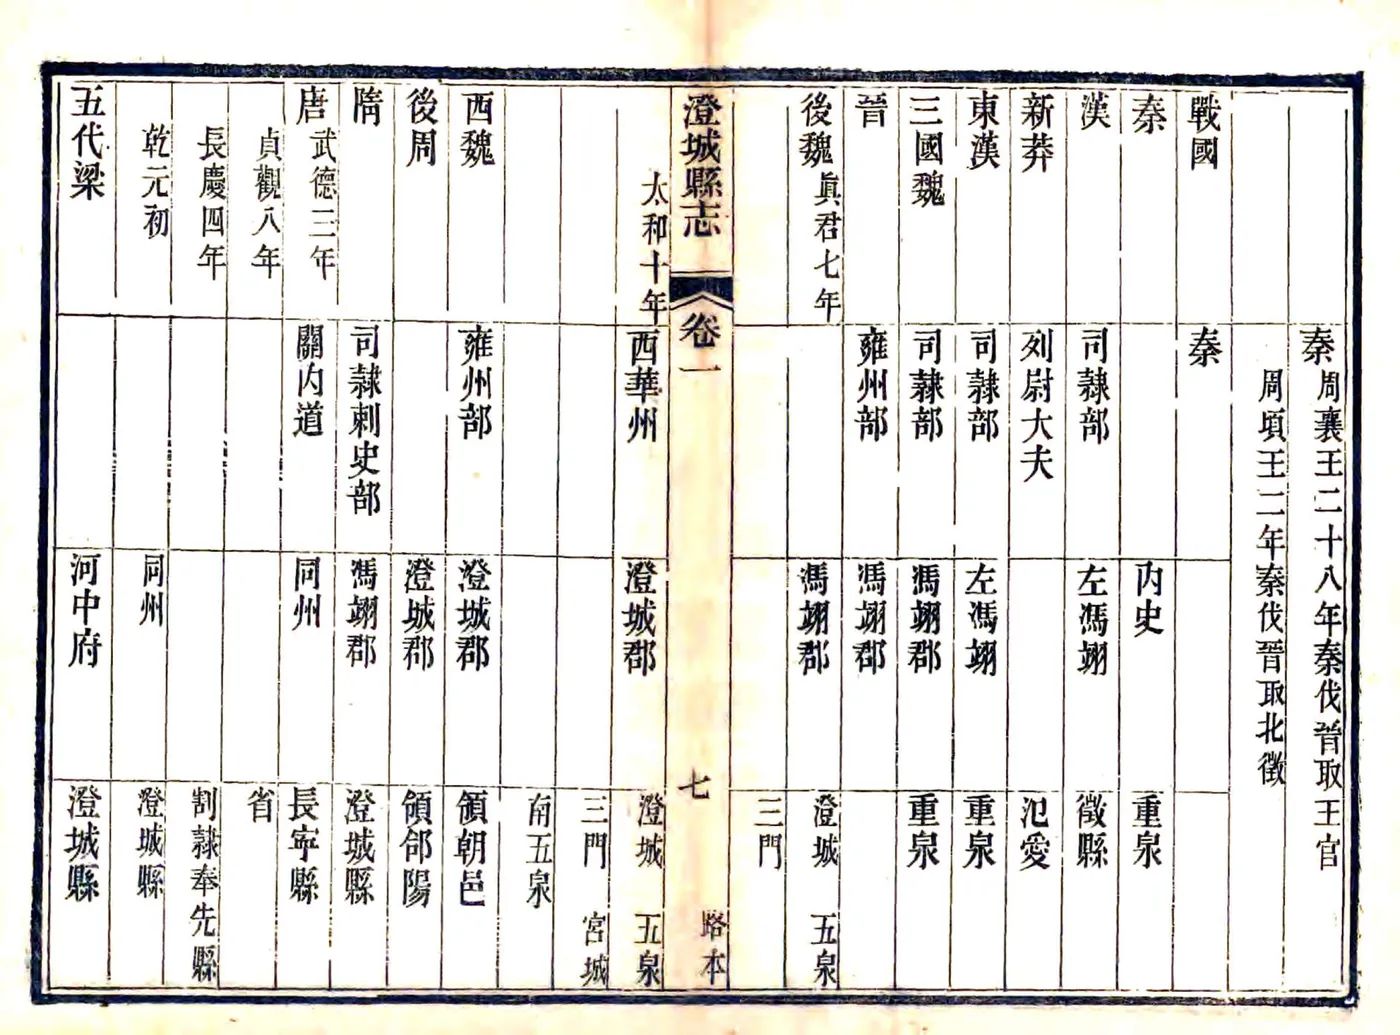 秦周襄王二十八年秦伐晉取王官
周頃王二年秦伐晉取北徵
戰國 秦
秦 內史 重泉
漢 司隸部 左馮翊 徵縣
新莽 列尉大夫 氾愛
東漢 司隸部 左馮翊 重泉
三國魏 司隸部 馮翊郡 重泉
晉 雍州部 馮翊郡
後魏眞君七年 馮翊郡 澄城 五泉
三門
澄城縣志 卷一 七 路本
太和十年 西華州 澄城郡 澄城 五泉
三門 宮城
南五泉
西魏 雍州部 澄城郡 領朝邑
後周 澄城郡 領郃陽
隋 司隸刺史部 馮翊郡 澄城縣
唐武德三年 關內道 同州 長寧縣
貞觀八年 省
長慶四年 割隸奉先縣
乾元初 同州 澄城縣
五代梁 河中府 澄城縣